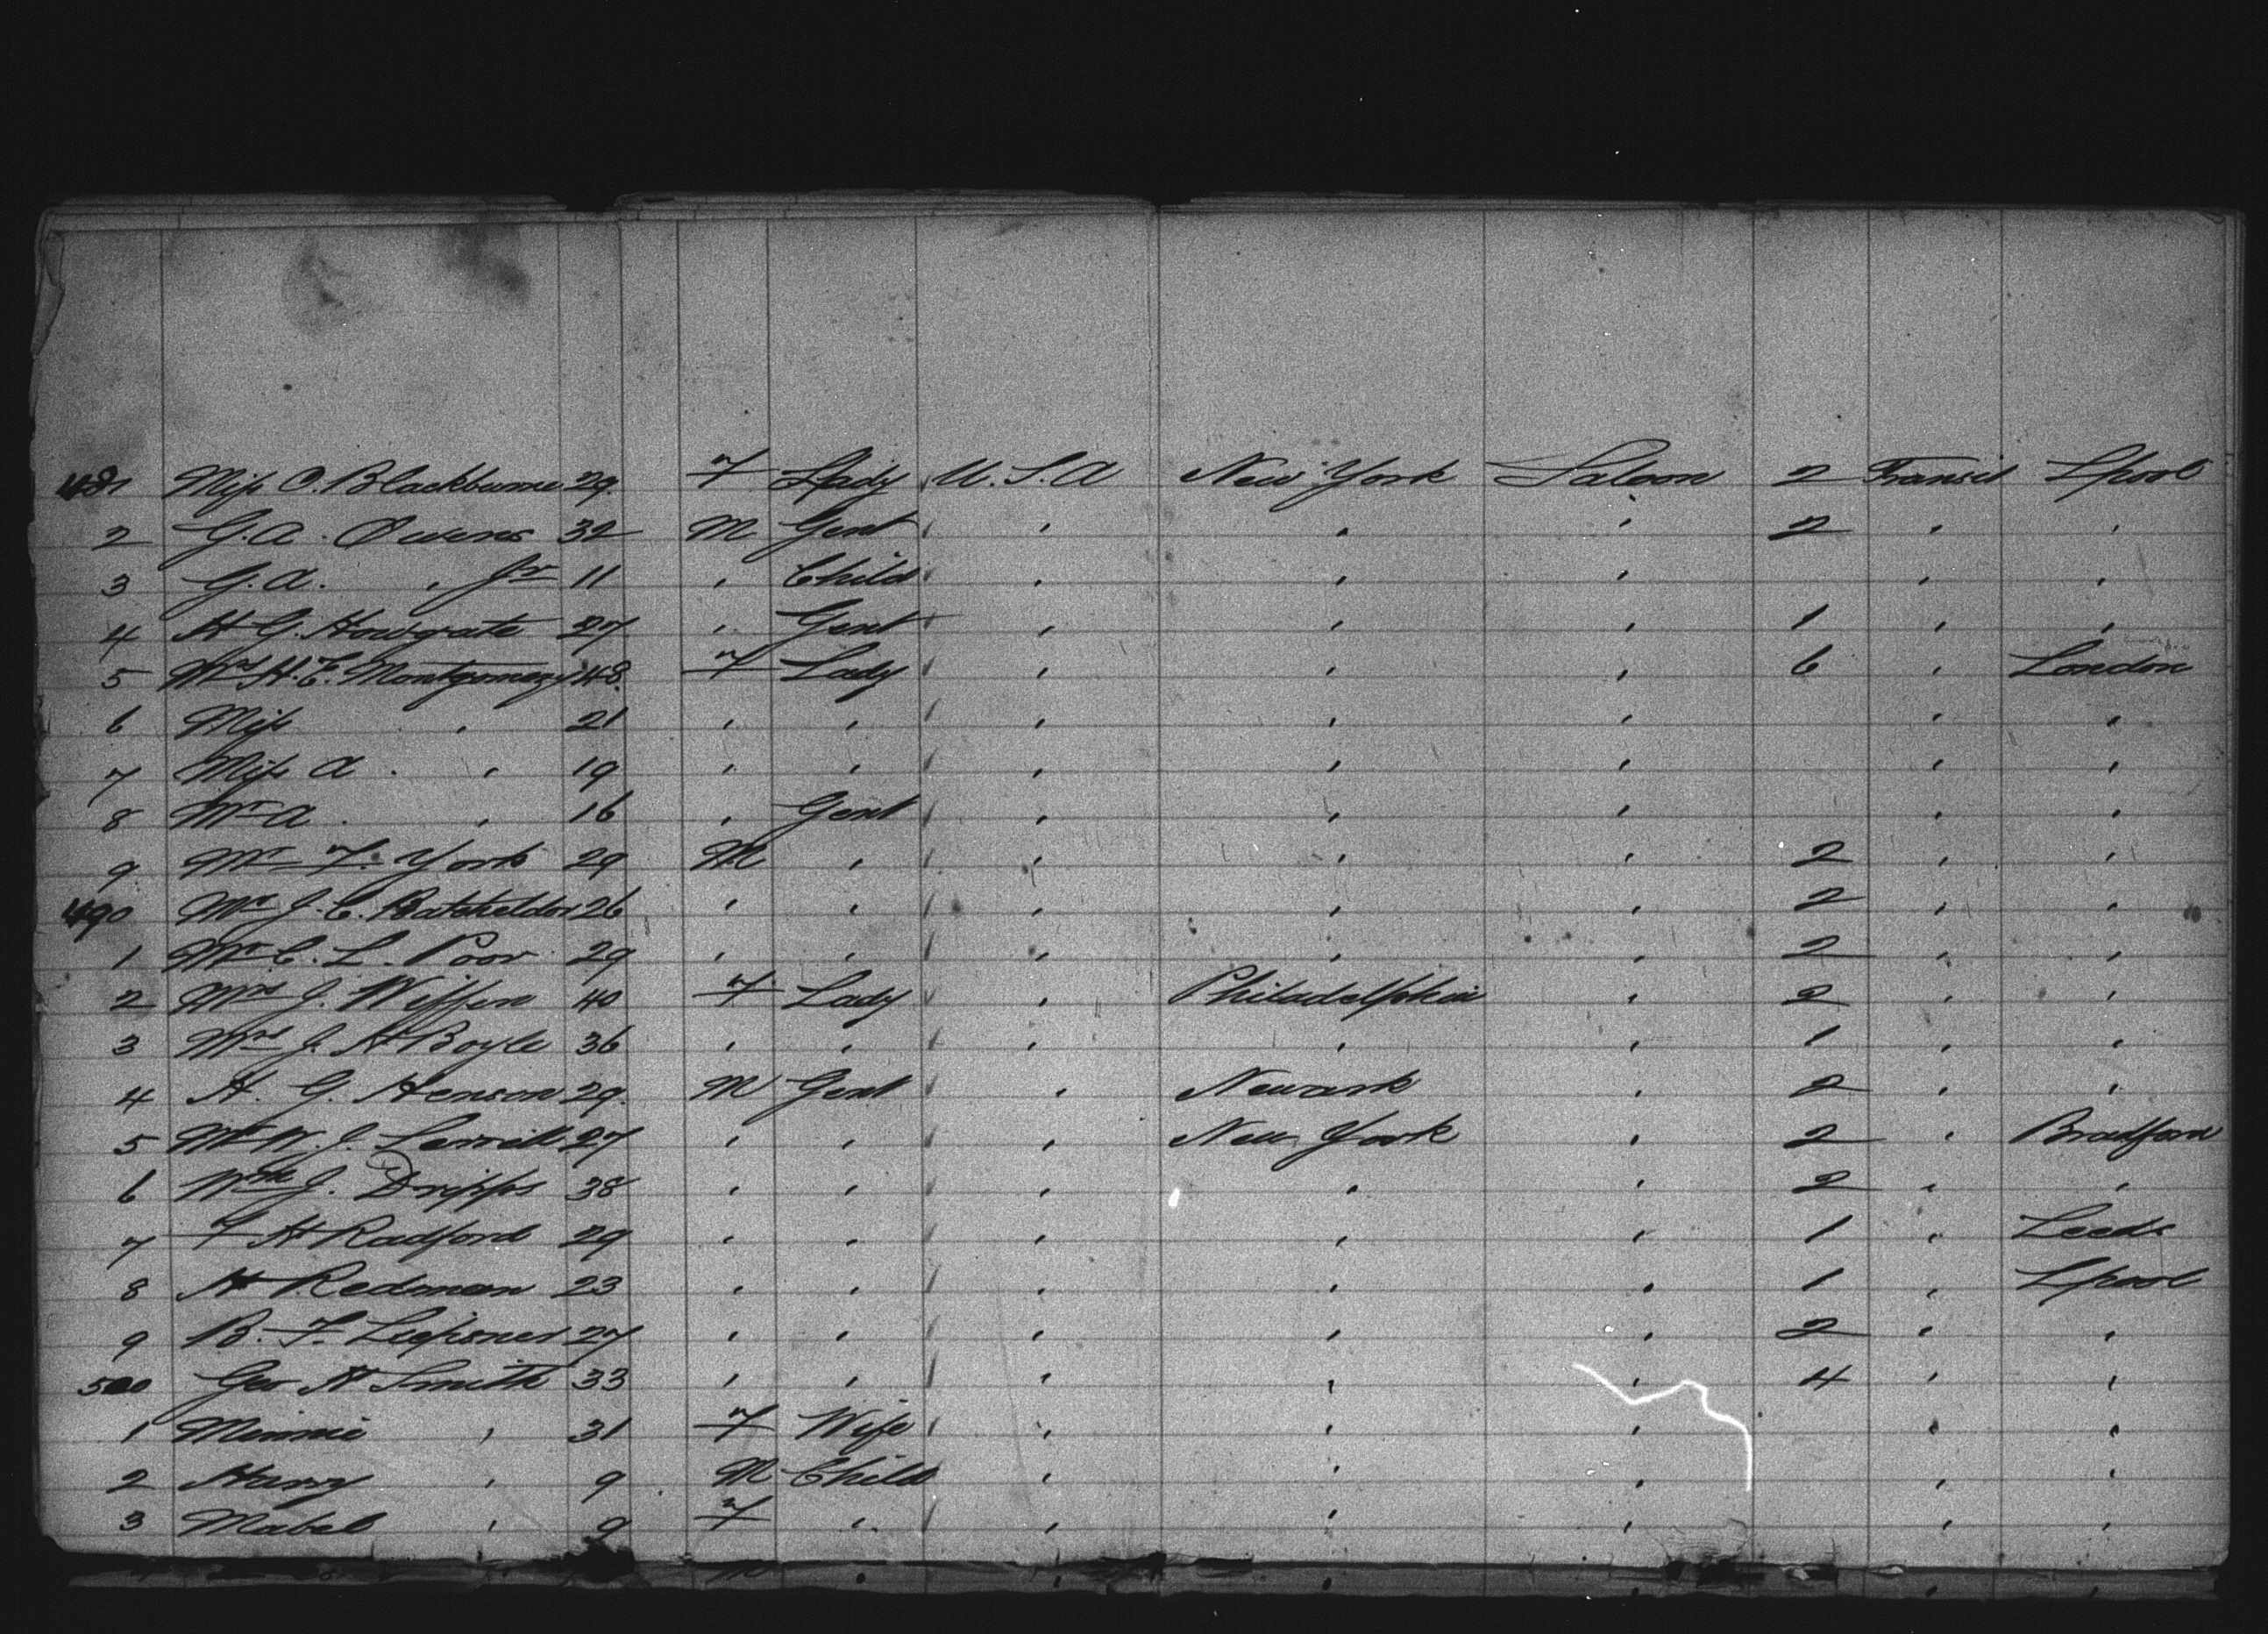 481 Miss C. Blackburne 29 F Lady U.S.A New York Saloon 2 Transit Lpool
2 G. A. Owens 32 M Gent " " " 2 " "
3 G. A. " Jr 11 " Child " " " " "
4 H G. Howgate 27 " Gent " " " 1 " "
5 Mrs H. C. Montgomery 48 F Lady " " " 6 " London
6 Miss " 21 " " " " " " "
7 Miss A. " 19 " " " " " " "
8 Mr A. " 16 " Gent " " " " "
9 Mr F. York 29 M " " " " 2 " "
490 Mr J. C. Batchelder 26 " " " " " 2 " "
1 Mr C. L. Poor 29 " " " " " 2 " "
2 Mrs J. Wiffen 40 F Lady " Philadelphia " 2 " "
3 Mrs J. H Boyle 36 " " " " " 1 " "
4 H. G. Henson 29 M Gent " Newark " 2 " "
5 Mr W. J. 27 " " " New York " 2 " Bradford
6 Wm J. Dripps 38 " " " " " 2 " "
7 H Radford 29 " " " " " 1 " Leeds
8 H Redman 23 " " " " " 1 " Lpool
9 B. F. 27 " " " " " 2 " "
500 Geo H Smith 33 " " " " " 4 " "
1 Minnie " 31 F Wife " " " " "
2 Harry " 9 M Child " " " " "
3 Mabel " 9 F " " " " " "